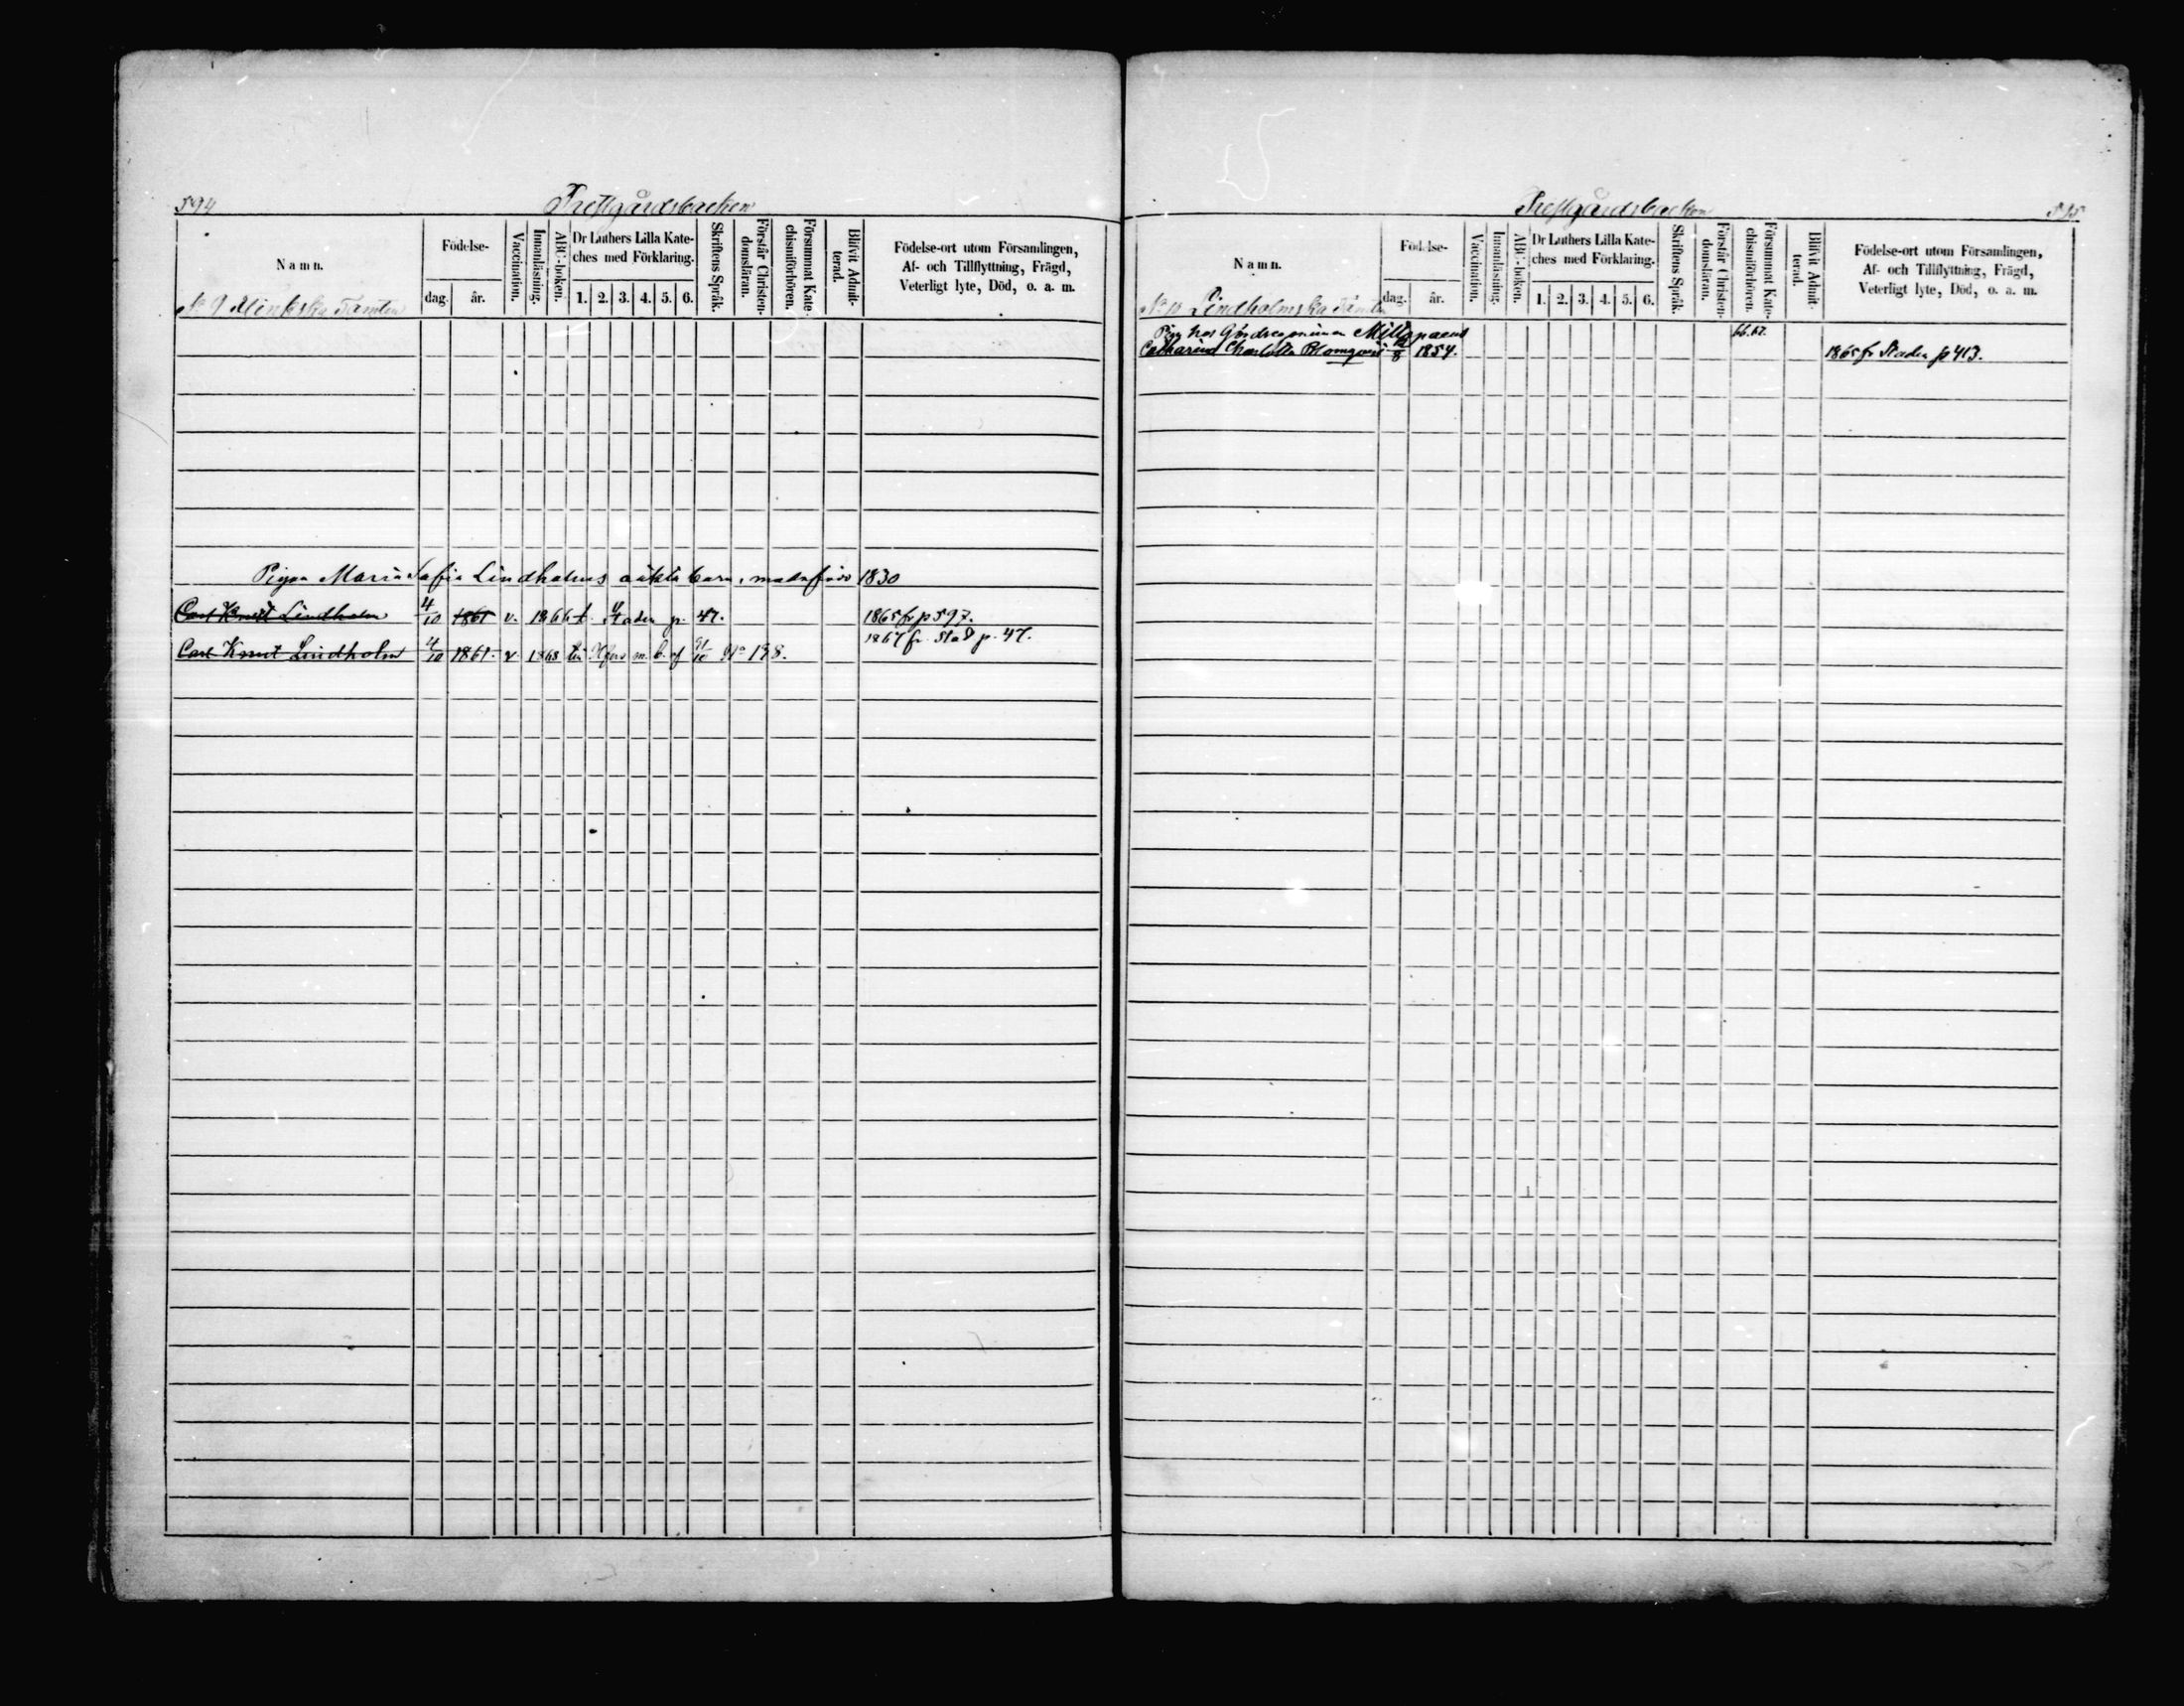 594
Prestgårdsbacken
Namn.
Födelse-
dag.
år.
Vaccination.
Innanläsning.
ABC-boken.
Dr Luthers Lilla Kate-
ches med Förklaring.
1. 2. 3. 4. 5. 6.
Skriftens Språk.
Förstår Christen-
domsläran.
Försummat Kate-
chismiförhören.
Blifvit Admit-
terad.
Födelse-ort utom Församlingen,
Af- och Tillflyttning, Frägd,
Veterligt lyte, Död, o. a. m.
No 9 Tomten
Pigan Maria Sofia Lindholms oäkta barn, 1830
Carl Knut Lindholm 4/10 1861 v. 1866 t. Staden p. 47. 1865 fr p 597.
1867 fr. Stad p. 47.
Carl Knut Lindholm 4/10 1861. v. 1868 till H:fors m. b. af No 198.
Prestgårdsbacken
595
Namn.
Födelse-
dag.
år.
Vaccination.
Innanläsning.
ABC-boken.
Dr Luthers Lilla Kate-
ches med Förklaring.
1. 2. 3. 4. 5. 6.
Skriftens Språk.
Förstår Christen-
domsläran.
Försummat Kate-
chismiförhören.
Blifvit Admit-
terad.
Födelse-ort utom Församlingen,
Af- och Tillflyttning, Frägd,
Veterligt lyte, Död, o. a. m.
No 10 Lindholmska Tomten
Pig hos 66. 67.
Catharina Charlotta Blomqvist 1854. 1865 fr Staden p 413.